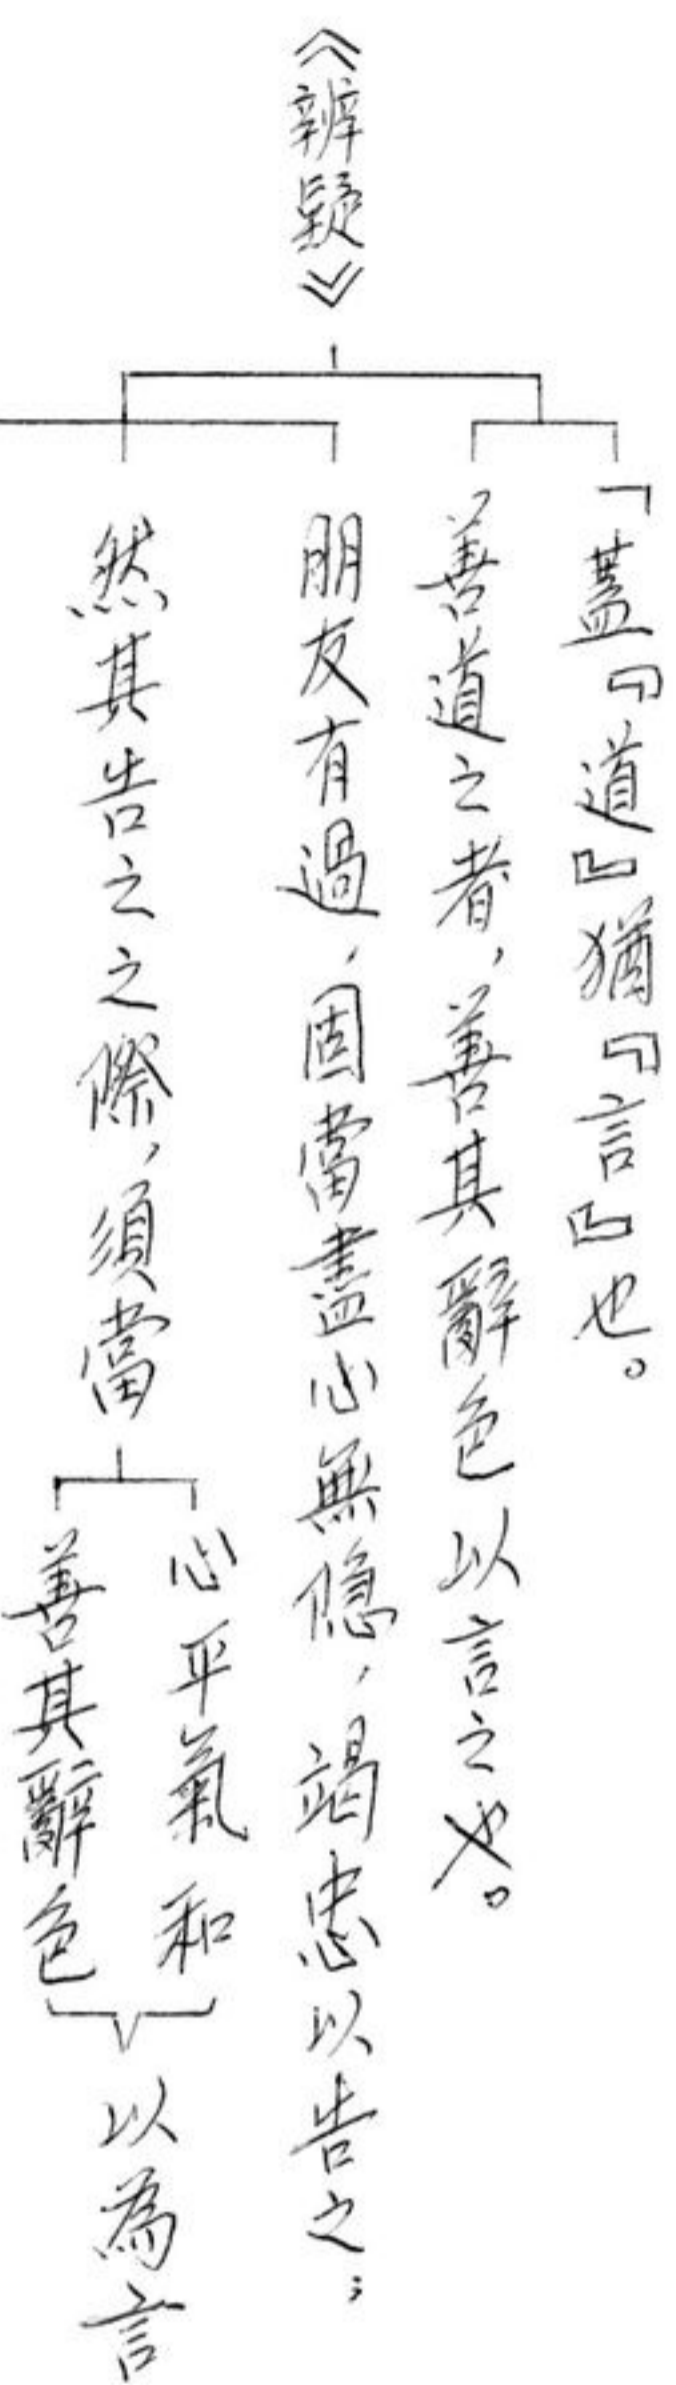 《辨疑》
「蓋『道』猶『言』也。
善道之者，善其辭色以言之也。
朋友有過，固當盡心無隱，竭忠以告之；
然其告之之際，須當
心平氣和
善其辭色
以為言